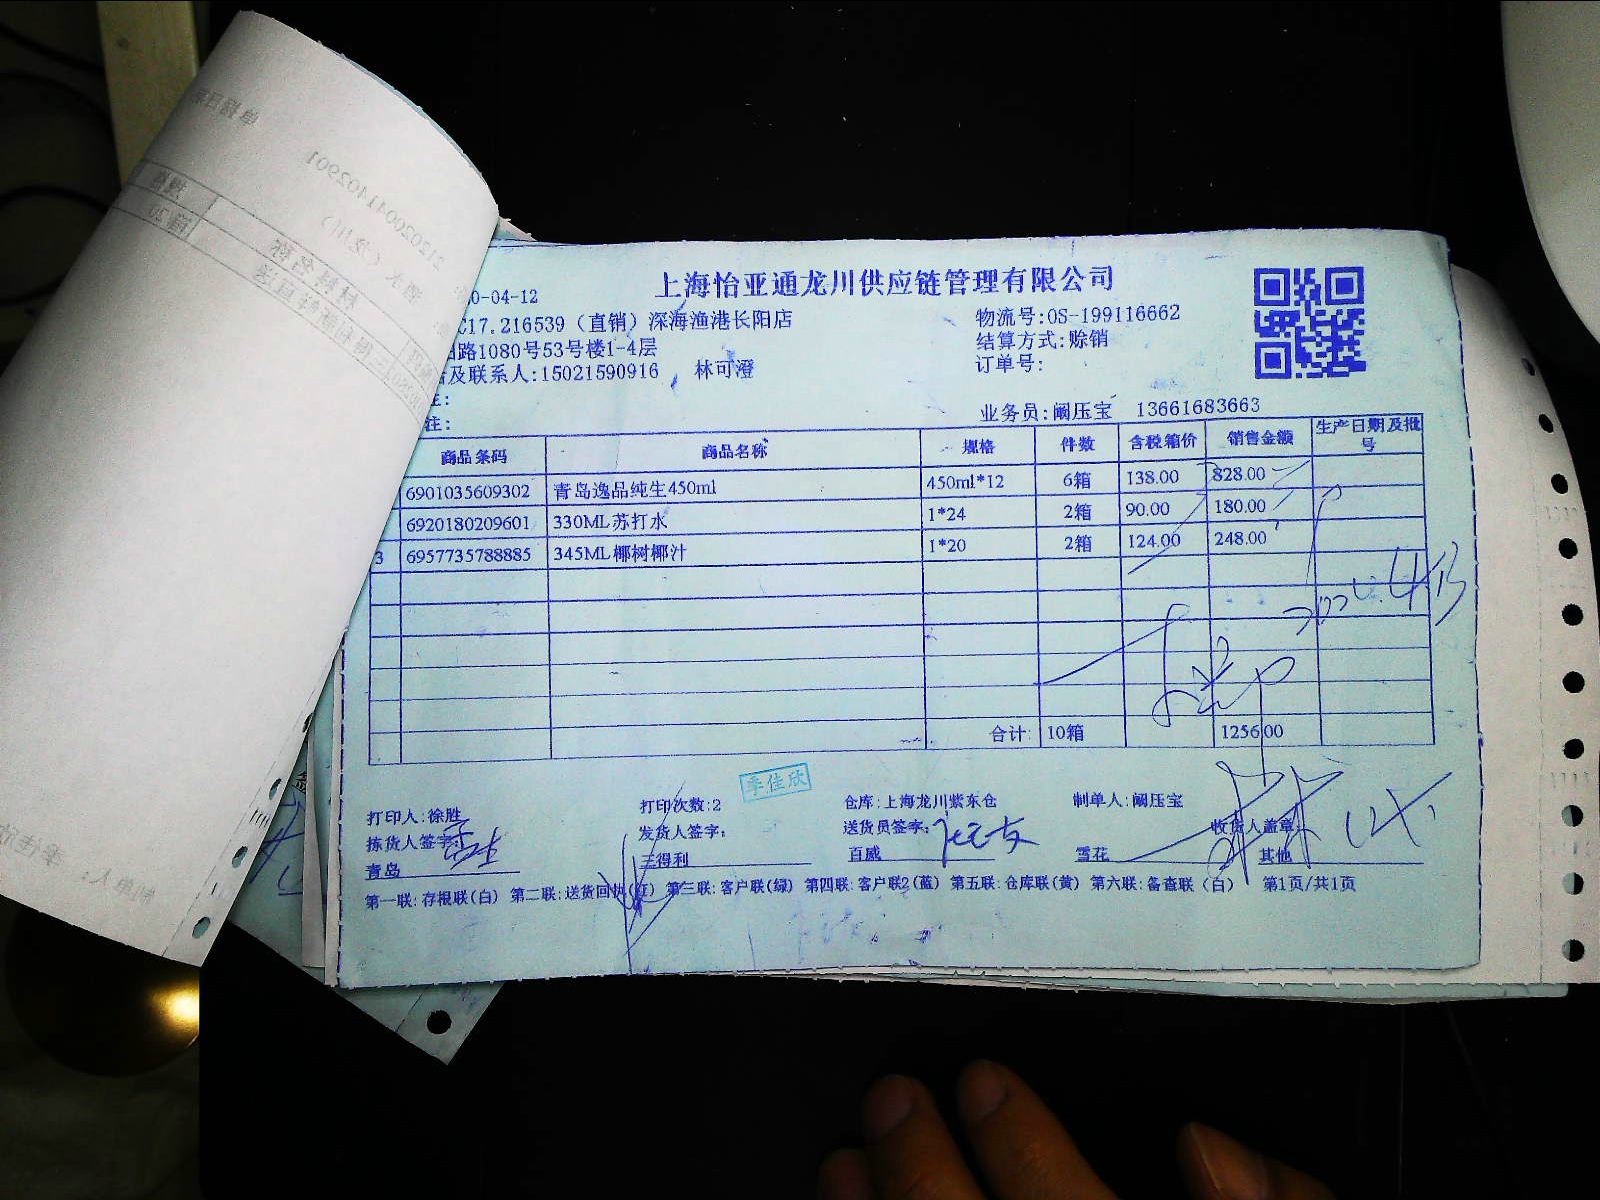 上海怡亚通龙川供应链管理有限公司
0-04-12
C17.216539（直销）深海渔港长阳店
物流号:OS-199116662
路1080号53号楼1-4层
结算方式:赊销
及联系人:15021590916 林可澄
订单号:
注:
业务员:阚压宝 13661683663
商品条码 商品名称 规格 件数 含税箱价 销售金额 生产日期及批号
6901035609302 青岛逸品纯生450ml 450ml*12 6箱 138.00 828.00
6920180209601 330ML苏打水 1*24 2箱 90.00 180.00
3 6957735788885 345ML椰树椰汁 1*20 2箱 124.00 248.00
合计: 10箱 1256.00
季佳欣
打印人:徐胜 打印次数:2 仓库:上海龙川紫东仓 制单人:阚压宝
拣货人签字: 发货人签字: 送货员签字: 收货人盖章:
青岛 三得利 百威 雪花 其他
第一联:存根联(白) 第二联:送货回执(红) 第三联:客户联(绿) 第四联:客户联2(蓝) 第五联:仓库联(黄) 第六联:备查联（白） 第1页/共1页